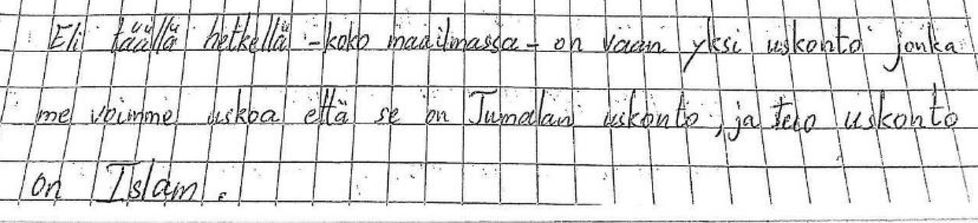 Eli täällä hetkellä - koko maailmassa - on vaan yksi uskonto jonka
me voimme uskoa että se on Jumalan uskonto, ja uskonto
on Islam.